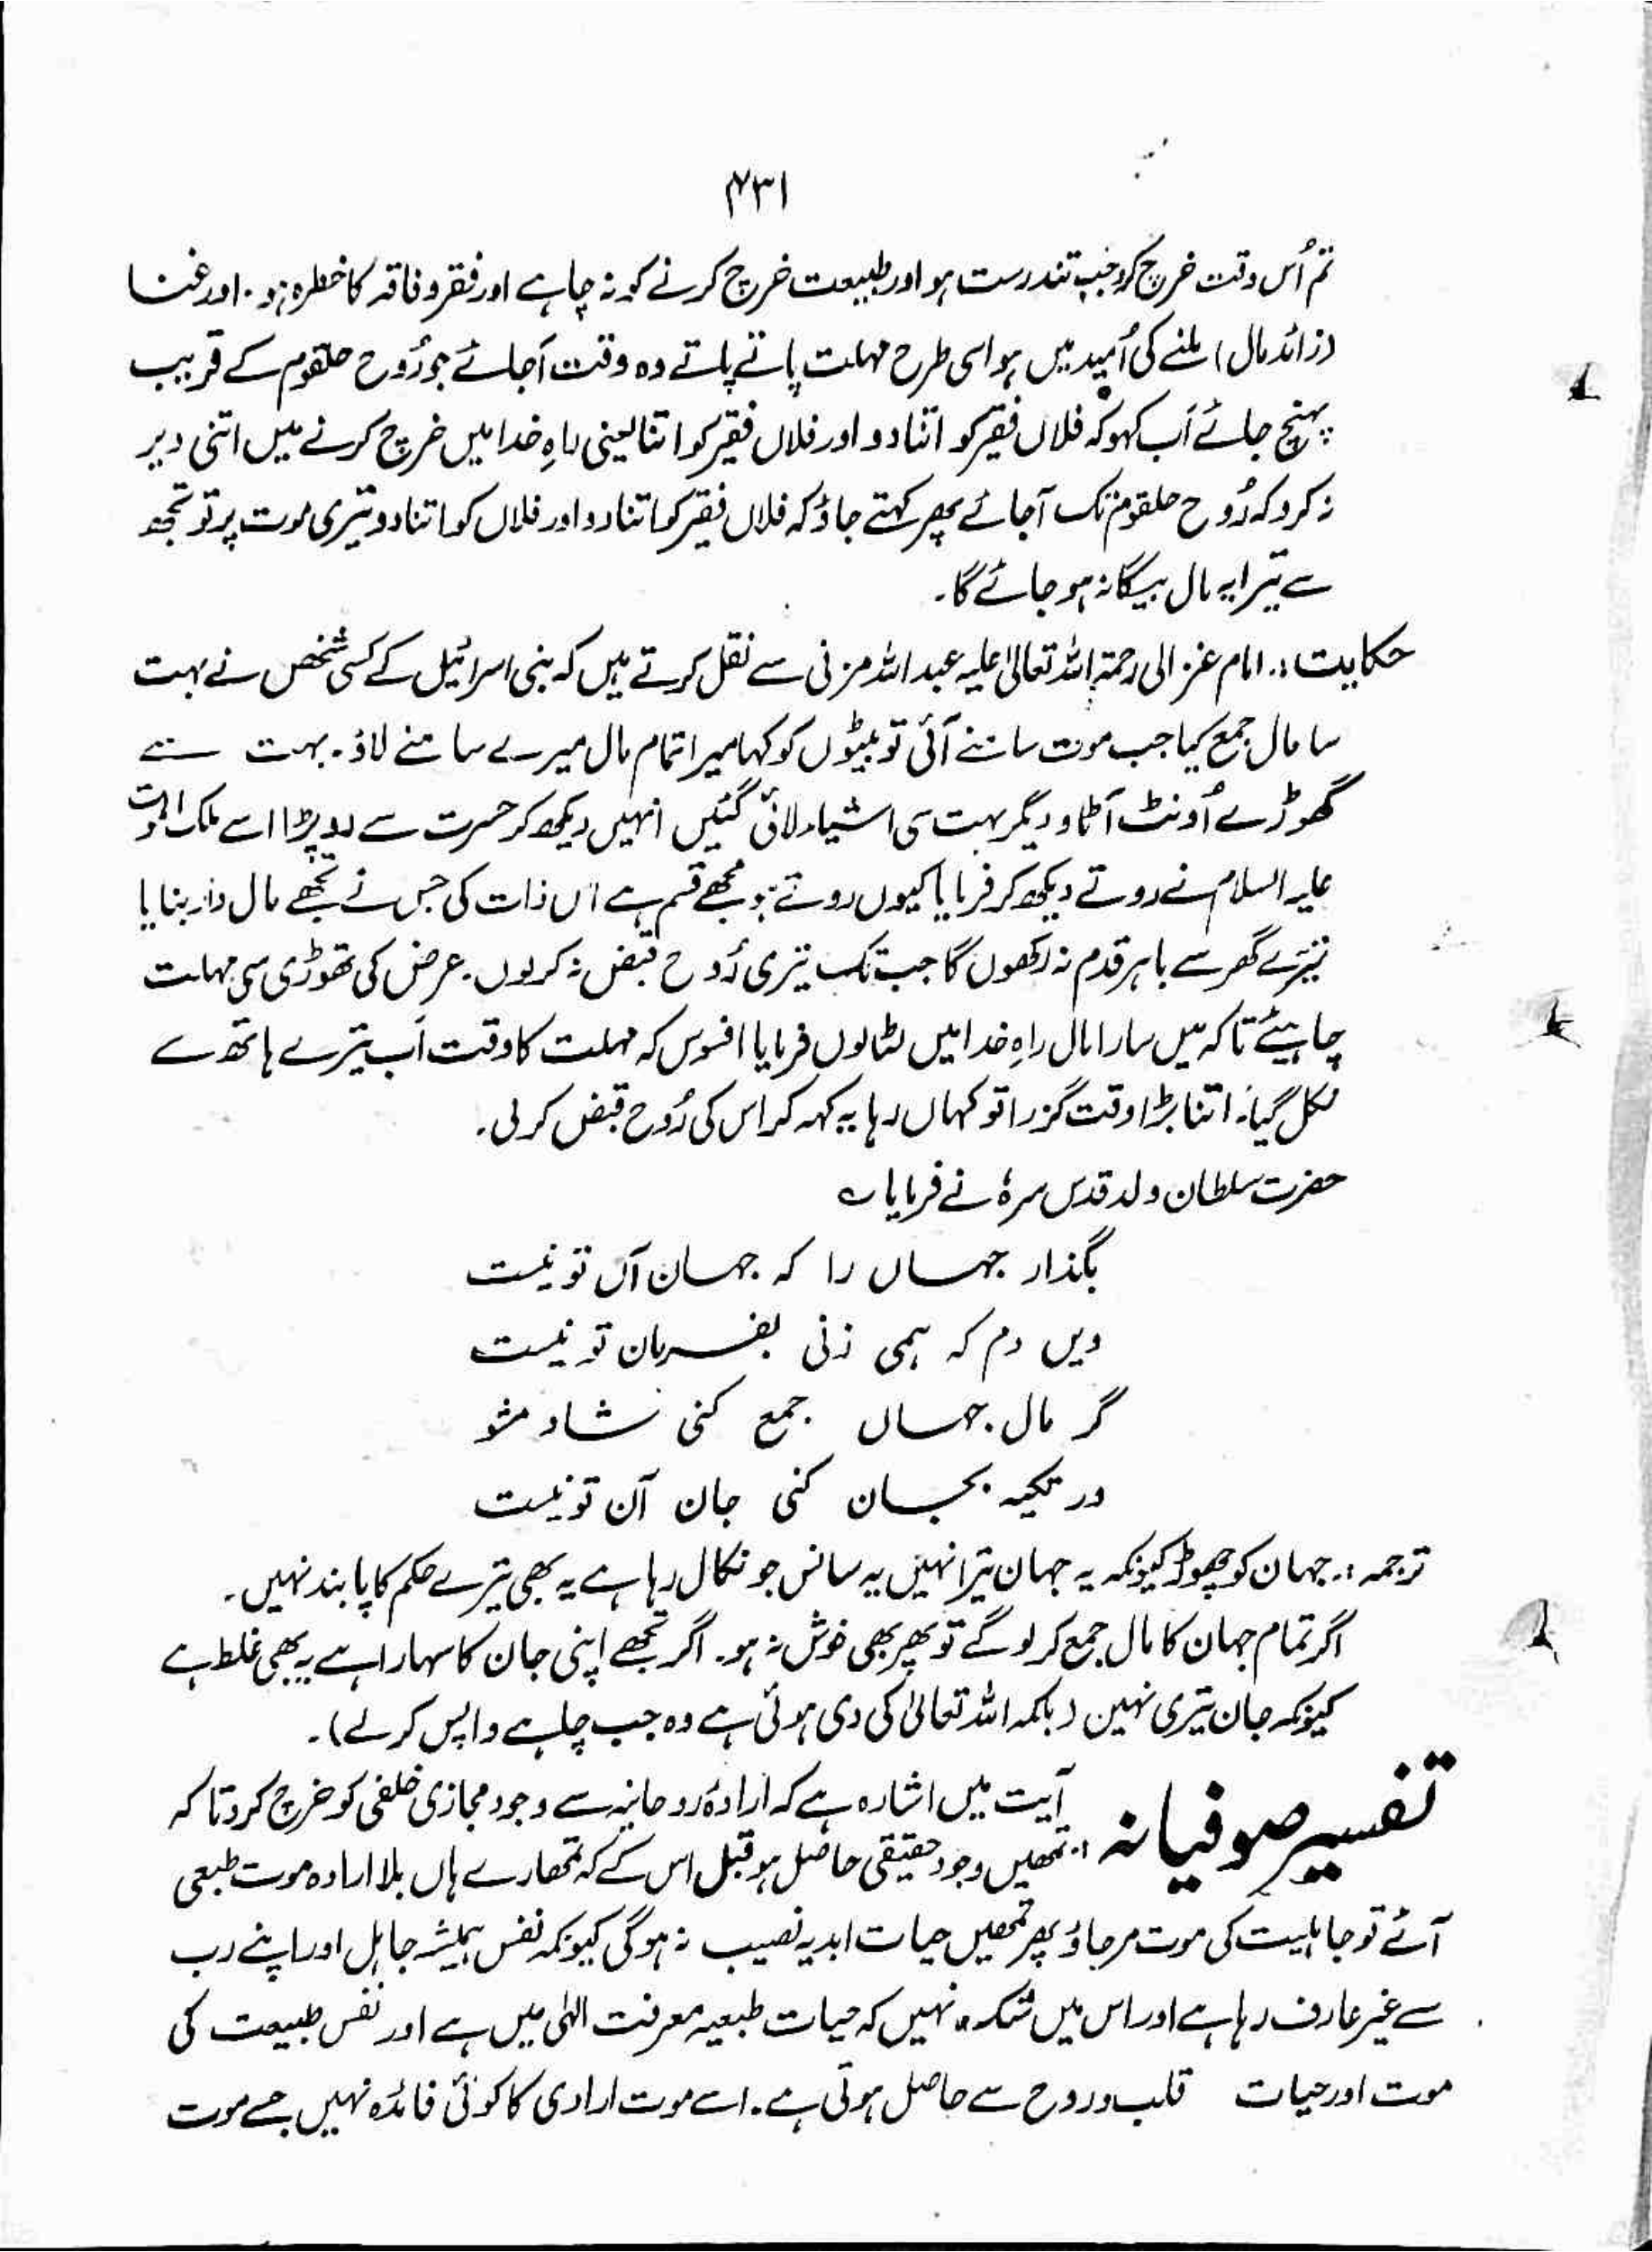 ۷۳۱
تم اُس وقت خرچ کرو جب تندرست ہو اور طبیعت خرچ کرنے کو نہ چاہے اور فقر و فاقہ کا خطرہ ہو۔ اور غنا
(زائد مال) ملنے کی اُمید میں ہو اسی طرح مہلت پاتے پاتے وہ وقت آجائے جو رُوح حلقوم کے قریب
پہنچ جائے اَب کہو کہ فلاں فقیر کو اتنا دو اور فلاں فقیر کو اتنا یعنی راہِ خدا میں خرچ کرنے میں اتنی دیر
نہ کرو کہ رُوح حلقوم تک آجائے پھر کہتے جاؤ کہ فلاں فقیر کو اتنا دو اور فلاں کو اتنا دو تیری موت پر تو تجھ
سے تیرا یہ مال بیگانہ ہو جائے گا۔
حکایت :۔ امام غزالی رحمۃ اللہ تعالیٰ علیہ عبد اللہ مزنی سے نقل کرتے ہیں کہ بنی اسرائیل کے کسی شخص نے بہت
سا مال جمع کیا جب موت سامنے آئی تو بیٹوں کو کہا میرا تمام مال میرے سامنے لاؤ۔ بہت سے
گھوڑے اُونٹ آٹا و دیگر بہت سی اشیاء لائی گئیں انہیں دیکھ کر حسرت سے رو پڑا اسے ملک الموت
علیہ السلام نے روتے دیکھ کر فرمایا کیوں روتے ہو مجھے قسم ہے اس ذات کی جس نے تجھے مال دار بنایا
تیرے گھر سے باہر قدم نہ رکھوں گا جب تک تیری رُوح قبض نہ کر لوں۔ عرض کی تھوڑی سی مہلت
چاہیئے تاکہ میں سارا مال راہِ خدا میں لٹا لوں فرمایا افسوس کہ مہلت کا وقت اَب تیرے ہاتھ سے
نکل گیا۔ اتنا بڑا وقت گزرا تو کہاں رہا یہ کہہ کر اس کی رُوح قبض کر لی۔
حضرت سلطان ولد قدس سرہٗ نے فرمایا ؎
بگذار جہاں را کہ جہان آں تو نیست
ویں دم کہ ہمی زنی بفرمان تو نیست
گر مال جہاں جمع کنی شاد مشو
ور تکیہ بجان کنی جان آن تو نیست
ترجمہ :۔ جہان کو چھوڑ کیونکہ یہ جہان تیرا نہیں یہ سانس جو نکال رہا ہے یہ بھی تیرے حکم کا پابند نہیں۔
اگر تمام جہان کا مال جمع کر لو گے تو پھر بھی خوش نہ ہو۔ اگر تجھے اپنی جان کا سہارا ہے یہ بھی غلط ہے
کیونکہ جان تیری نہیں (بلکہ اللہ تعالیٰ کی دی ہوئی ہے وہ جب چاہے واپس کر لے)۔
تفسیر صوفیانہ :۔ آیت میں اشارہ ہے کہ ارادۂ روحانیہ سے وجود مجازی خلقی کو خرچ کر دو تاکہ
تمھیں وجود حقیقی حاصل ہو قبل اس کے کہ تمھارے ہاں بلا ارادہ موت طبعی
آئے تو جاہلیت کی موت مر جاؤ پھر تمھیں حیات ابدیہ نصیب نہ ہوگی کیونکہ نفس ہمیشہ جاہل اور اپنے رب
سے غیر عارف رہا ہے اور اس میں شک نہیں کہ حیات طبعیہ معرفت الٰہی میں ہے اور نفس طبیعت کی
موت اور حیات قلب و روح سے حاصل ہوتی ہے۔ اسے موت ارادی کا کوئی فائدہ نہیں جسے موت